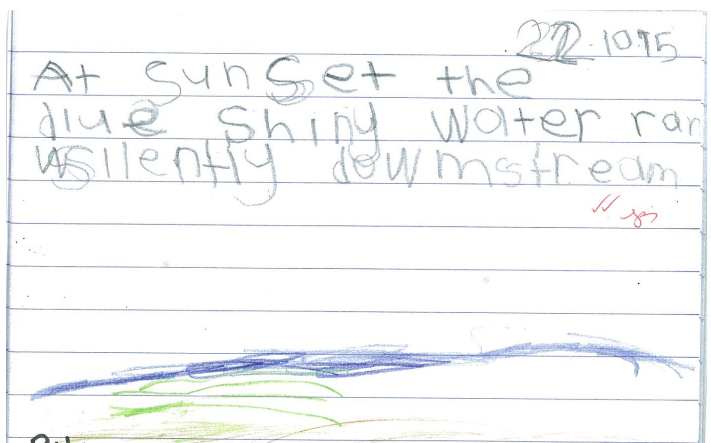 22.10.15
At sunset the
dlue shiny water ran
silently dowmstream